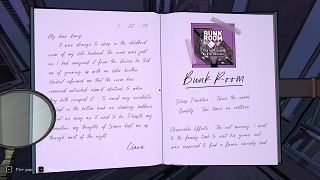 My dear diary,
It was strange to sleep in the childhood
room of my late husband. The room was just
as I had imagined it from the stories he told
me of growing up with an older brother.
Herbert informed me that the room has
remained untouched, almost identical to when
they both occupied it. To avoid any accidents
I slept in the bottom bunk as climbing ladders
isn't as easy as it used to be. Despite my
my thoughts of Simon kept me up
through most of the night.
Clara
BUNK
ROOM
Bunk Room
Sleep Duration - Twice the norm
Quality - Two times as restive
Observable Effects - The next morning, I went
to the family tomb to visit his grave and
was surprised to find a flower already laid